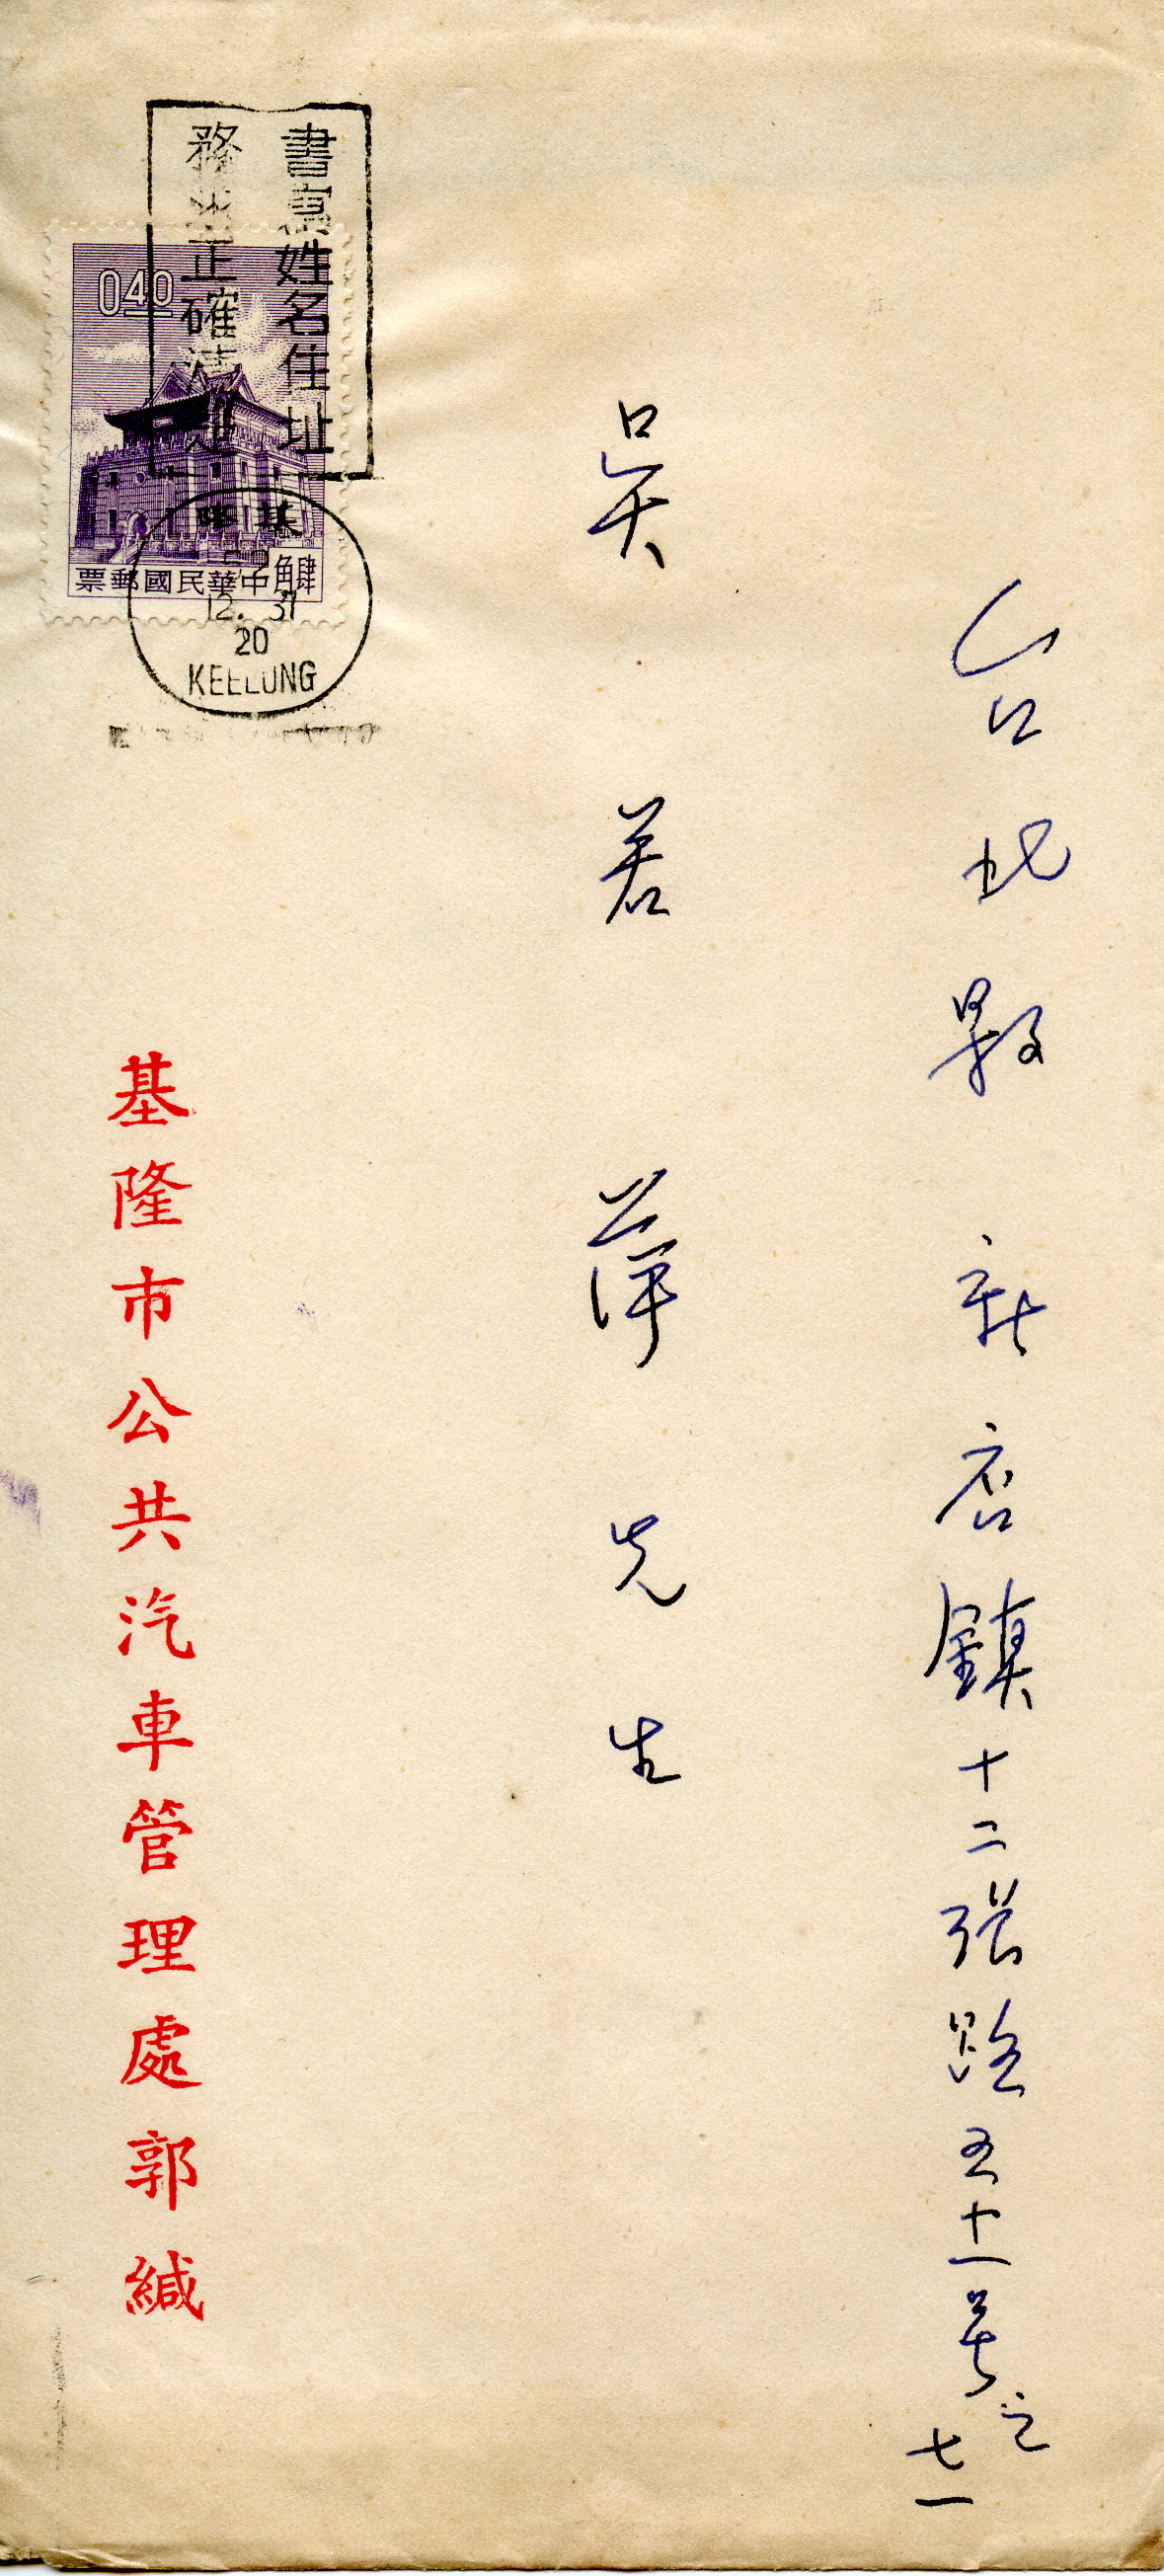 台北縣新店鎮十二張路五十一号之七一
吳若萍先生
書寫姓名住址
務求正確清楚
0.40
肆角中華民國郵票
基隆
12.31
20
KEELUNG
基隆市公共汽車管理處郭緘